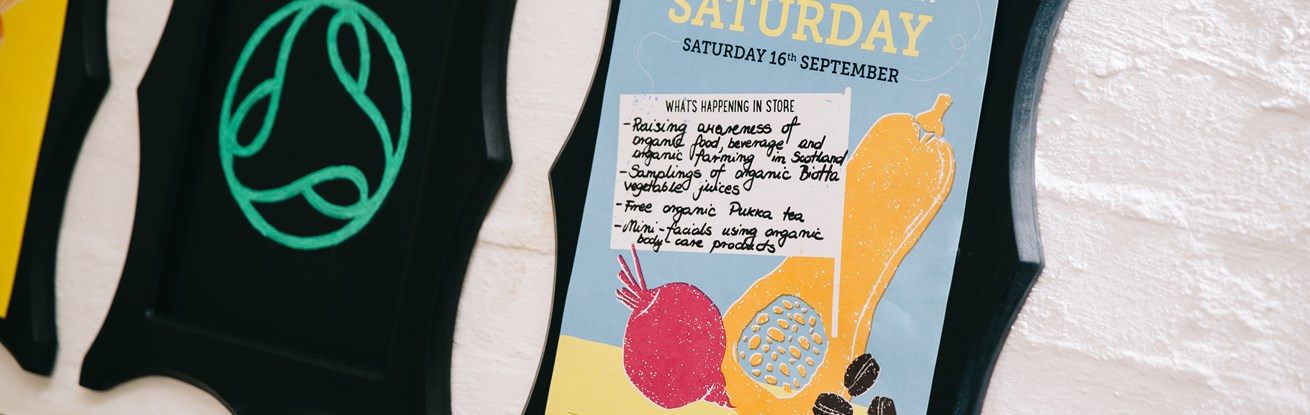 SATURDAY
SATURDAY 16th SEPTEMBER
WHATS HAPPENING IN STORE
- Raising awareness of
organic food, beverage and
organic farming in Scotland
- Samplings of organic Biotta
vegetable juices
- Free organic Pukka tea
- Mini-facials using organic
body-care products